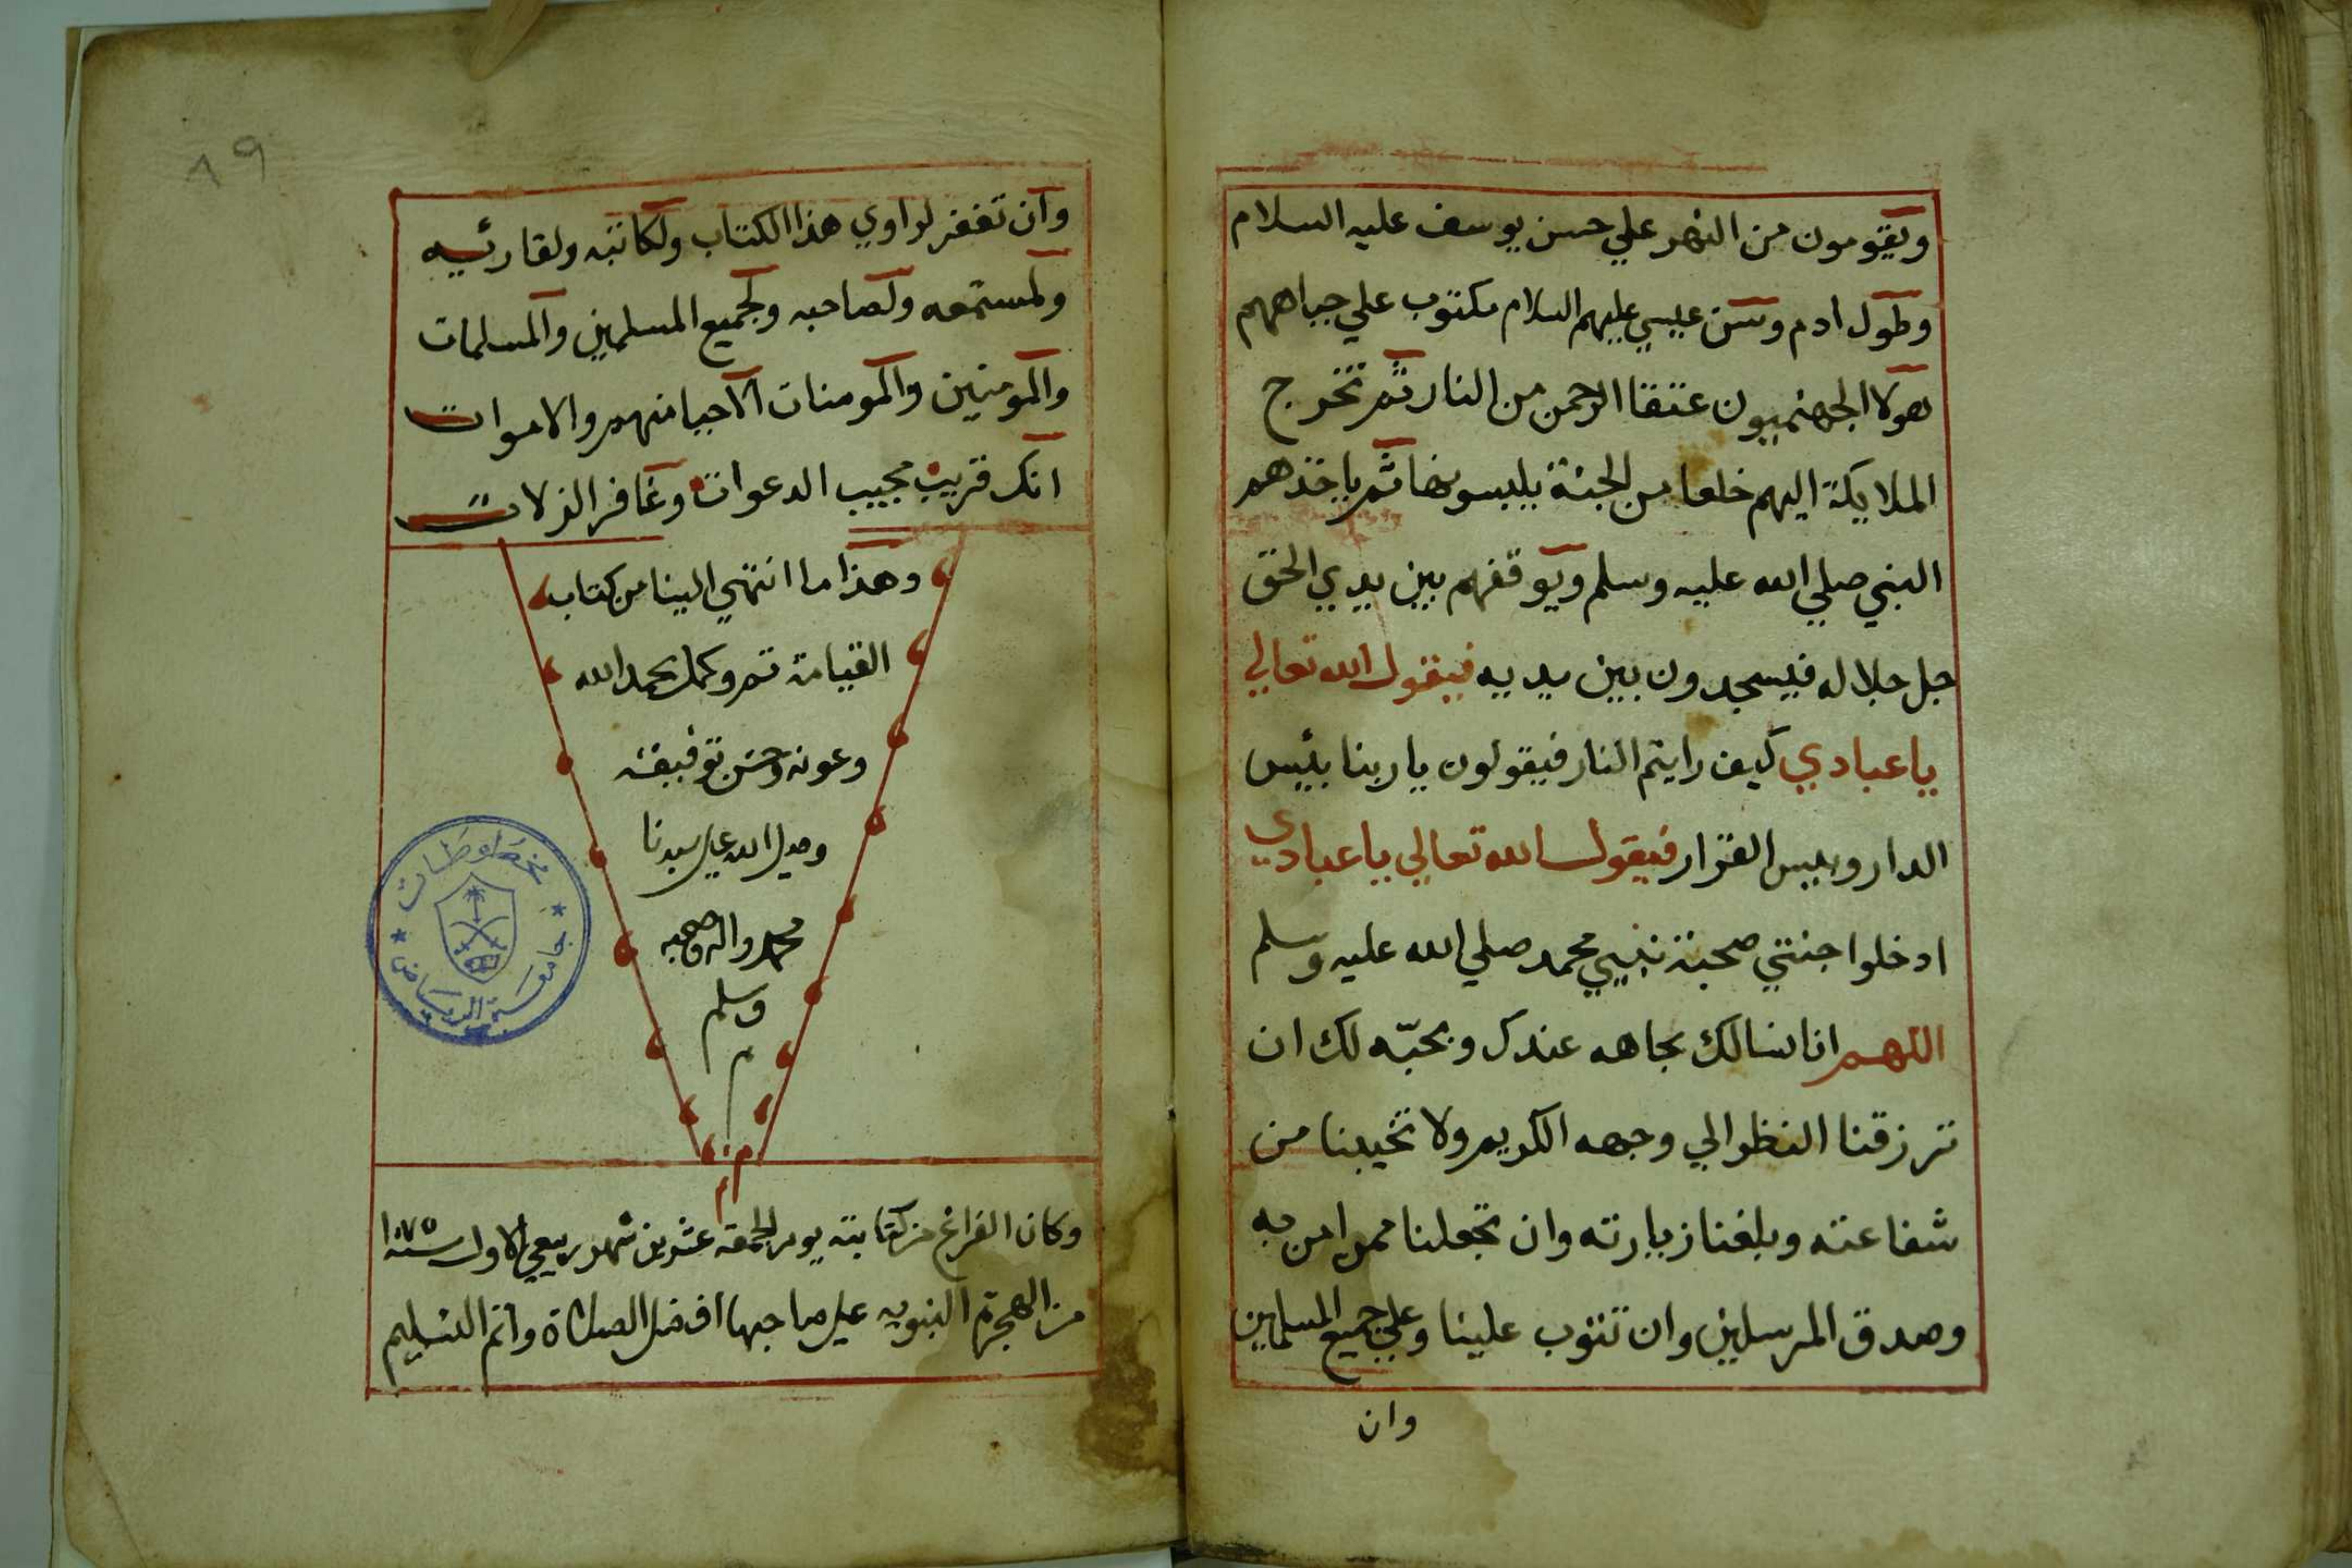 ويقومون من النهر علي حسن يوسف عليه السلام
وطول ادم وسن عيسي عليهم السلام مكتوب علي جباههم
هولا الجهنميون عتقا الرحمن من النار ثم تخرج
الملايكة اليهم خلعا من الجنة يلبسونها ثم ياخذهم
النبي صلي الله عليه وسلم ويوقفهم بين يدي الحق
جل جلاله فيسجدون بين يديه فيقول الله تعالي
يا عبادي كيف رايتم النار فيقولون يا ربنا بئيس
الدار وبيس القرار فيقول الله تعالي يا عبادي
ادخلوا جنتي صحبة نبيي محمد صلي الله عليه وسلم
اللهم انا نسالك بجاهه عندك وبحبّه لك ان
ترزقنا النظر الي وجهه الكريم ولا تخيبنا من
شفاعته وبلغنا زيارته وان تجعلنا ممن امن به
وصدق المرسلين وان تتوب علينا وعلي جميع المسلمين
وان
٨٩
وان تغفر لراوي هذا الكتاب ولكاتبه ولقارئيه
ولمستمعه ولصاحبه ولجميع المسلمين والمسلمات
والمومنين والمومنات الاحيا منهم والاموات
انك قريب مجيب الدعوات وغافر الزلات
وهذا ما انتهي الينا من كتاب
القيامة تم وكمل بحمد الله
وعونه وحسن توفيقه
وصلى الله على سيدنا
محمد واله وصحبه
وسلم
م
وكان الفراغ من كتابته يوم الجمعة عشرين شهر ربيع الاول سنة ١٠٧٥
من الهجرة النبويه على صاحبها افضل الصلاة واتم التسليم
مخطوطات
جامعة الرياض